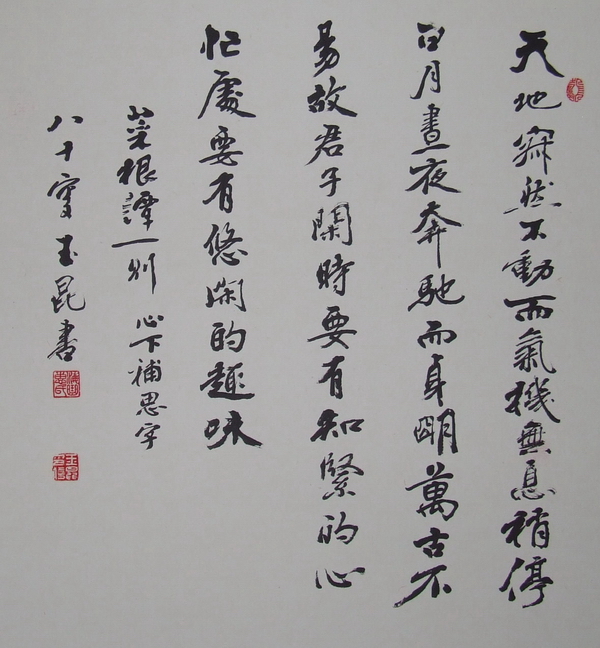 天地寂然不動而氣機無息稍停
日月晝夜奔馳而身明萬古不
易故君子閑時要有知緊的心
忙處要有悠閑的趣味
菜根譚一則 心下補思字
八十叟玉昆書